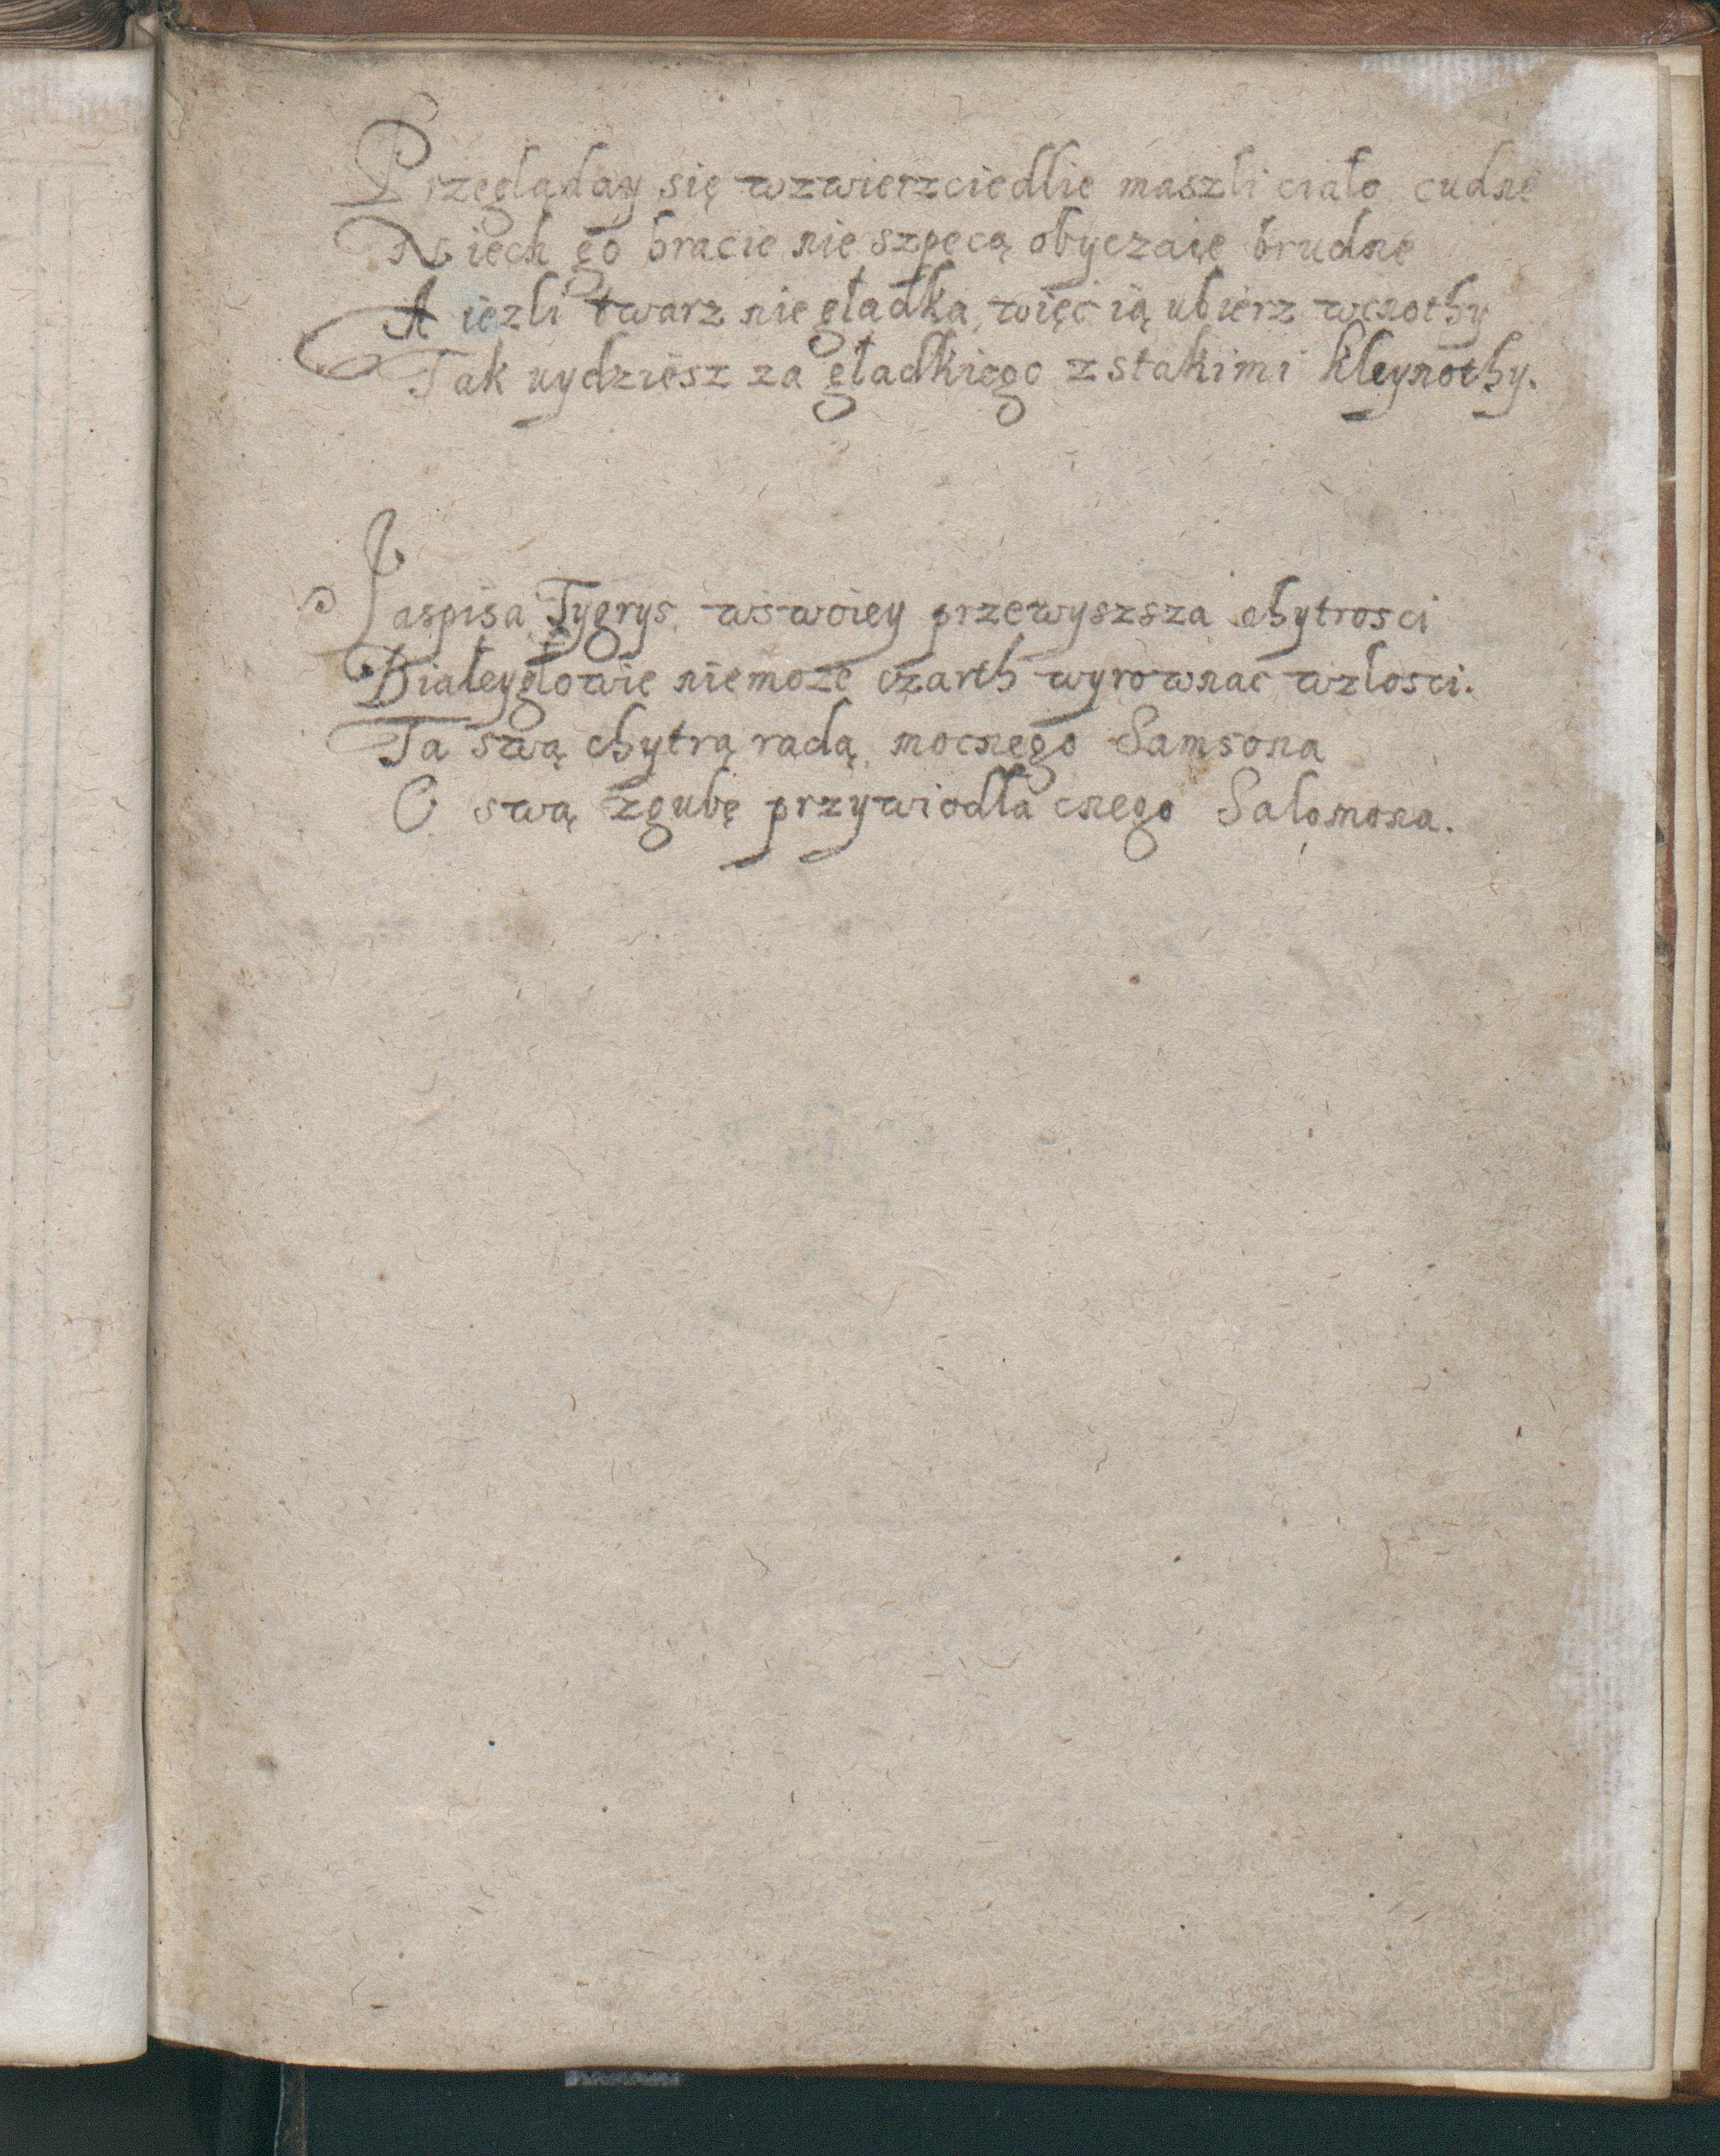 Przegląday się wzwierzciedlie maszli ciało cudne
Niech go bracie nie szpecą obyczaie brudne
A iezli twarz nie gładka, więc ią ubierz wcnothy
Tak uydziesz za gładkiego zstakimi kleynothy.
Jaspisa Tygrys wswoiey przewyszsza chytrosci
Białeygłowie niemoze czarth wyrownac wzłosci.
Ta swą chytrą radą mocnego Samsona
O swą zgubę przywiodła cnego Salomona.